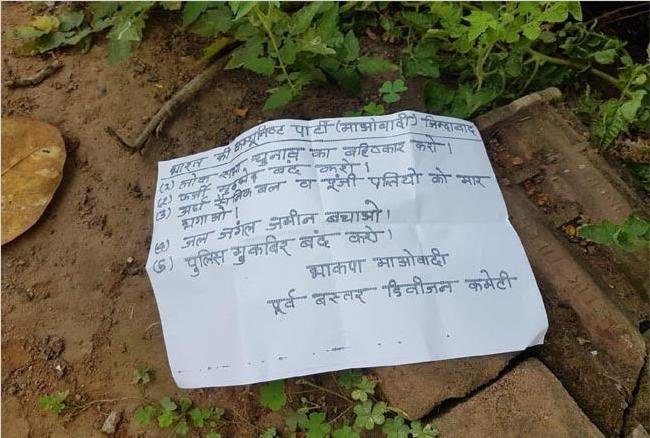 भारत की कम्युनिष्ट पार्टी (माओवादी) जिन्दाबाद
(1) लोक सभा चुनाव का बहिष्कार करो।
(2) फर्जी मुठभेड़ बंद करो।
(3) अर्ध सैनिक बल व पूंजी पतियों को मार
भगाओ।
(4) जल जंगल जमीन बचाओ।
(5) पुलिस मुकबिर बंद करो।
भाकपा माओवादी
पूर्व बस्तर डिवीजन कमेटी